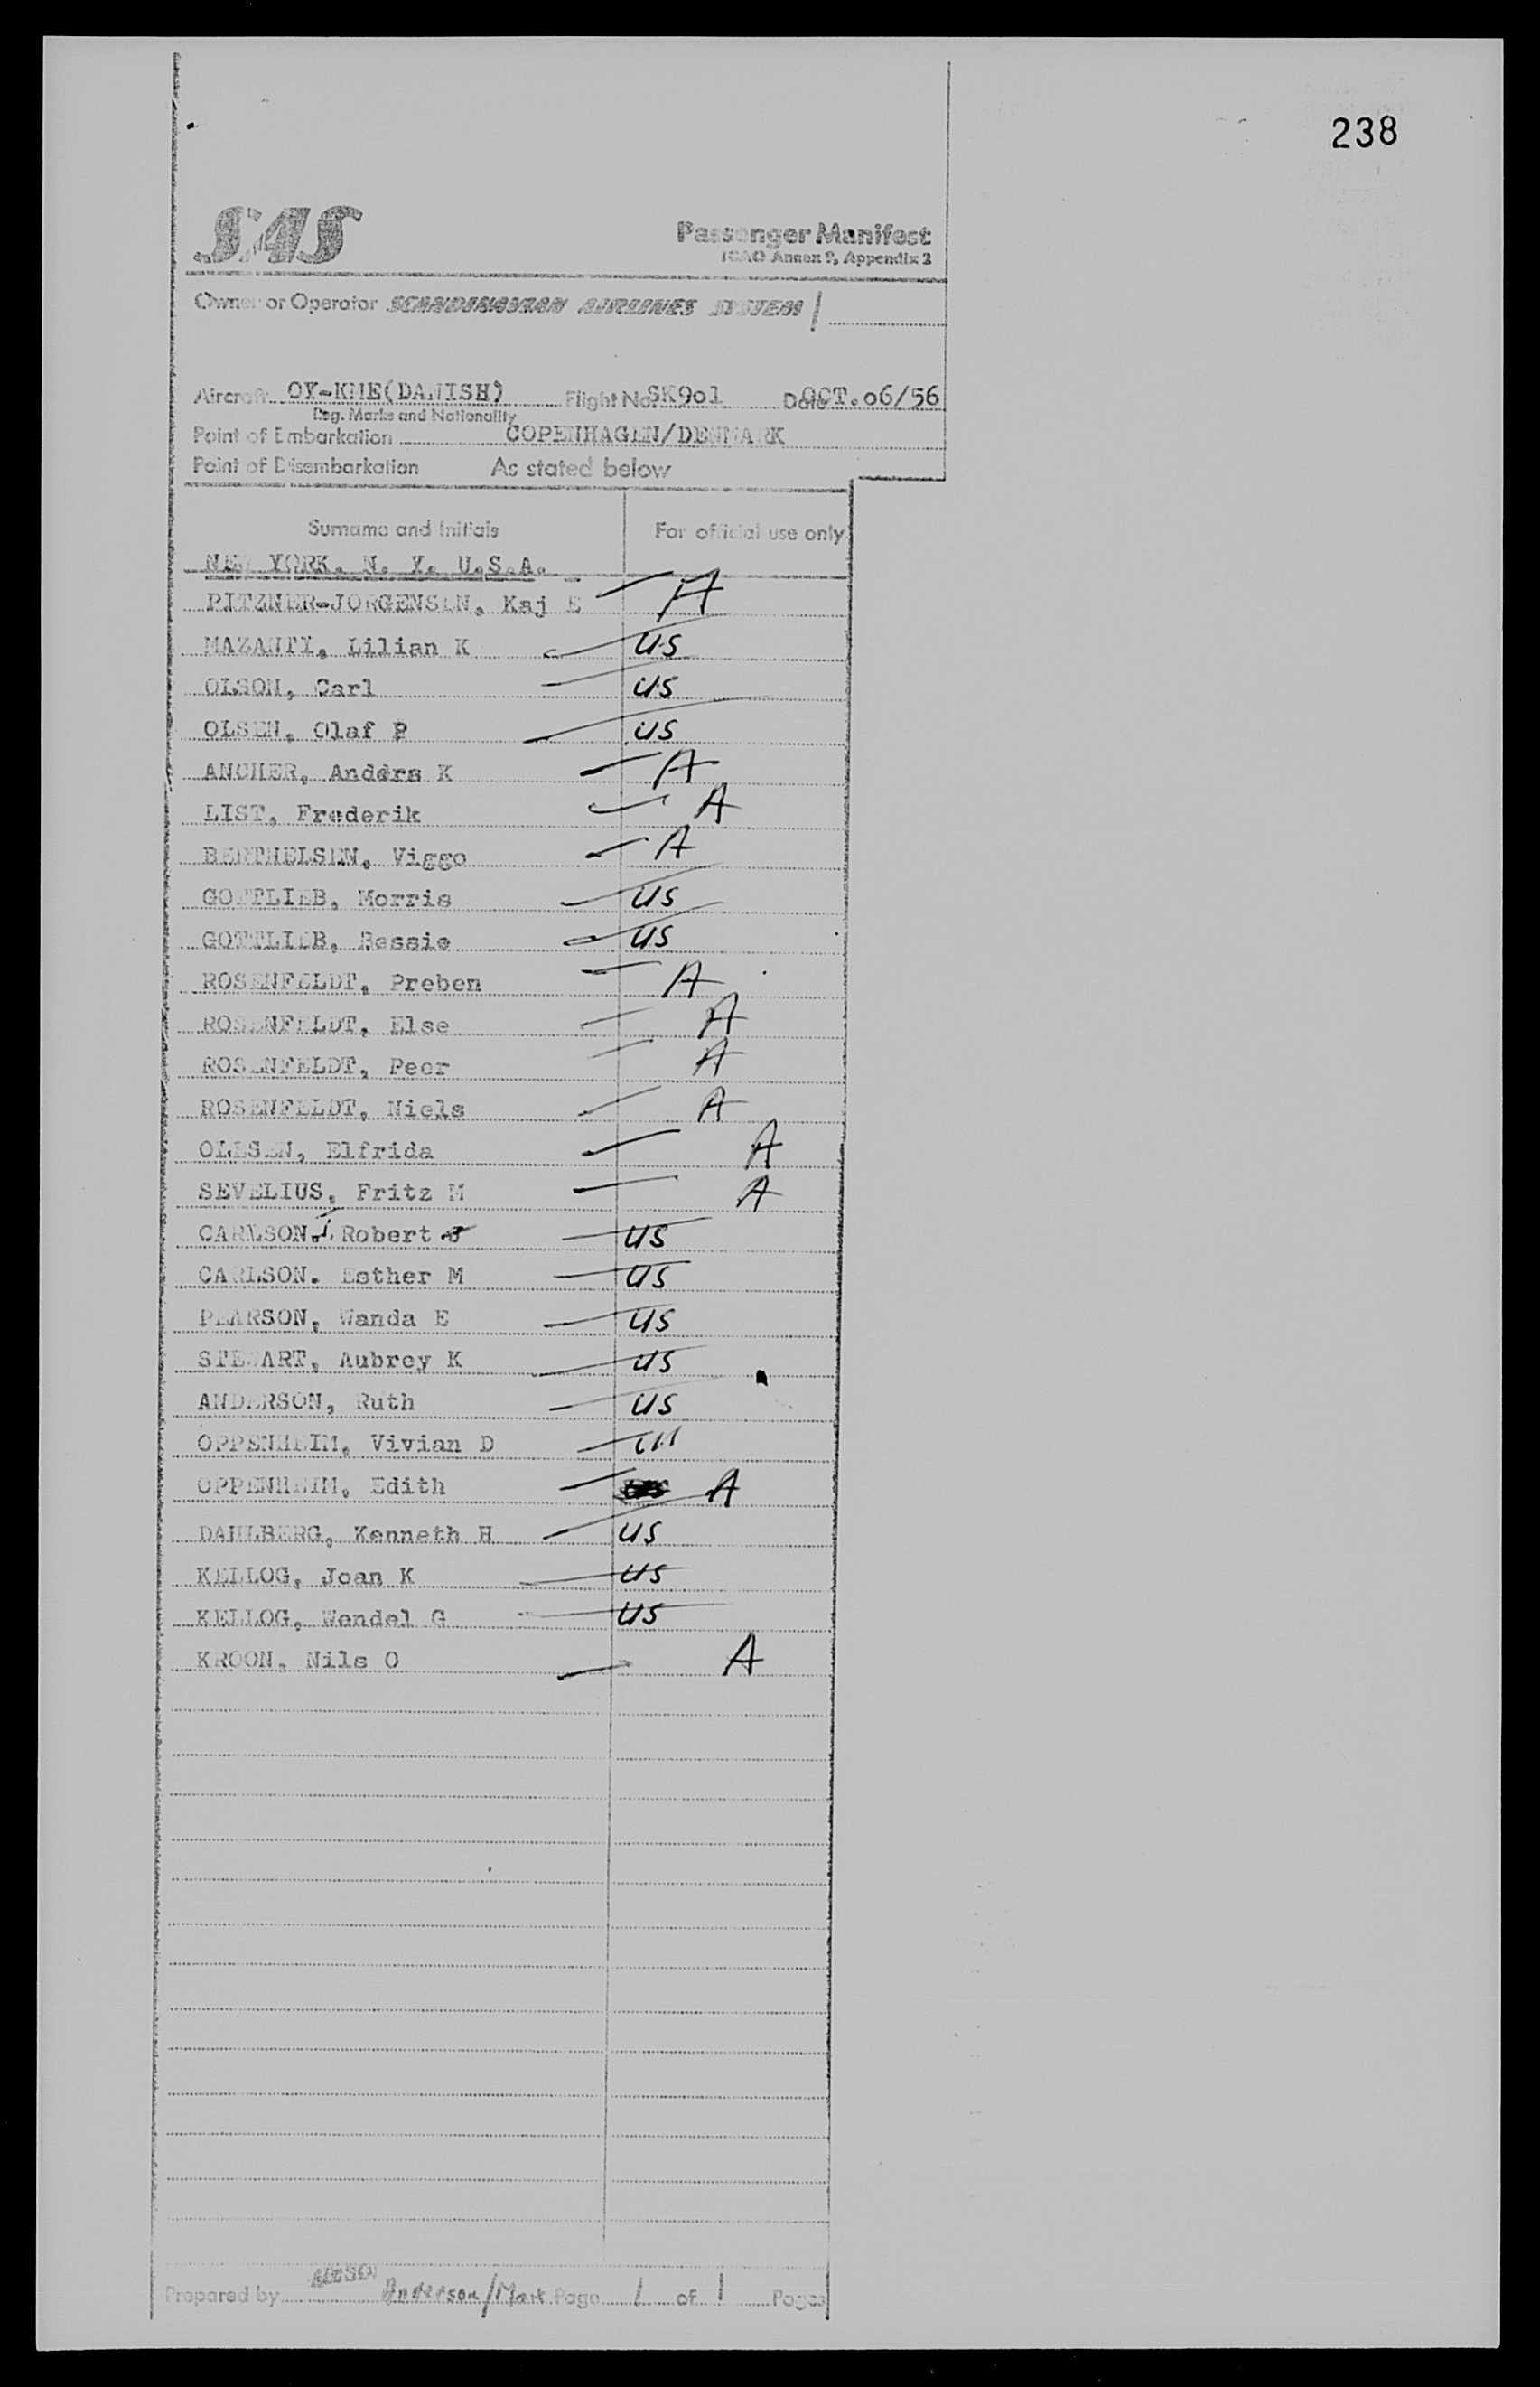 238
SAS
Passenger Manifest
ICAO Annex 9, Appendix 2
Owner or Operator SCANDINAVIAN AIRLINES SYSTEM
Aircraft OY-KME(DANISH) Flight No. SK901 Date OCT.06/56
Reg. Marks and Nationality
Point of Embarkation COPENHAGEN/DENMARK
Point of Disembarkation As stated below
Surname and Initials For official use only
NEW YORK. N. Y. U.S.A.
PITZNER-JORGENSEN, Kaj E A
MAZANTY, Lilian K US
OLSON, Carl US
OLSEN, Olaf P US
ANCHER, Anders K A
LIST, Frederik A
BERTHELSEN, Viggo A
GOTTLIEB, Morris US
GOTTLIEB, Bessie US
ROSENFELDT, Preben A
ROSENFELDT, Else A
ROSENFELDT, Peer A
ROSENFELDT, Niels A
OLESEN, Elfrida A
SEVELIUS, Fritz M A
CARLSON, Robert US
CARLSON. Esther M US
PEARSON, Wanda E US
STEWART, Aubrey K US
ANDERSON, Ruth US
OPPENHEIM, Vivian D US
OPPENHEIM, Edith A
DAHLBERG, Kenneth H US
KELLOG, Joan K US
KELLOG, Wendel G US
KROON, Nils O A
Prepared by Anderson/Mark Page 1 of 1 Pages